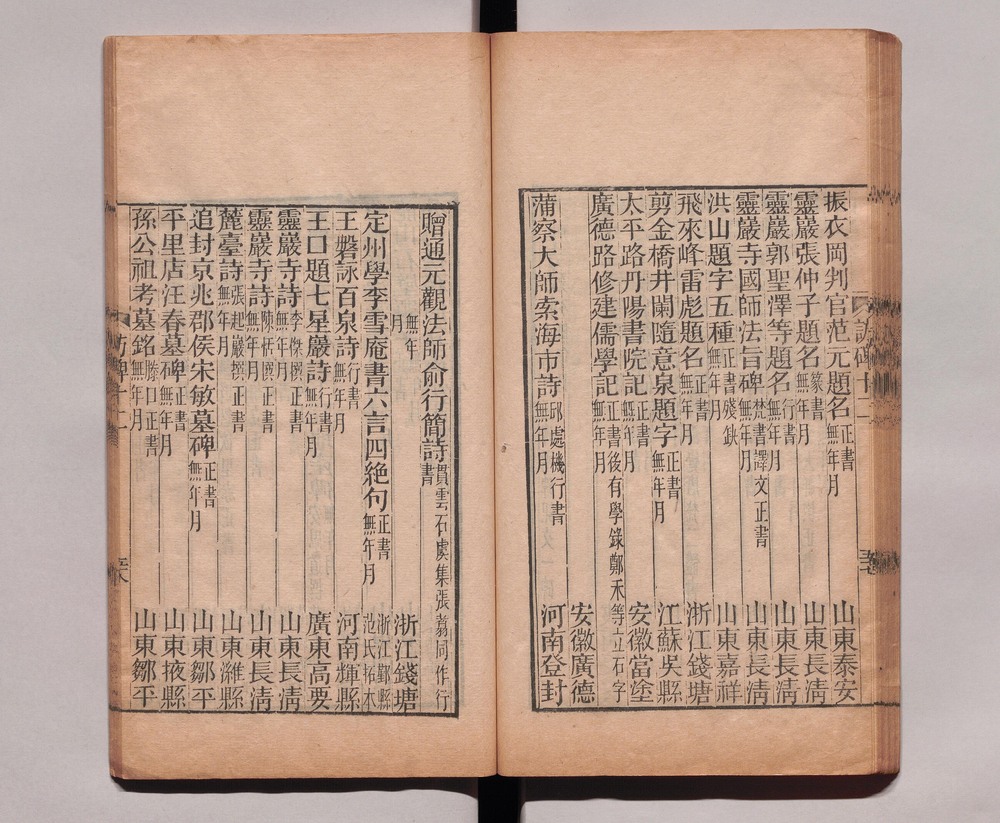 訪碑十二
振衣岡判官范元題名 正書 無年月 山東泰安
靈巖張仲子題名 篆書 無年月 山東長淸
靈巖郭聖澤等題名 行書 無年月 山東長淸
靈巖寺國師法旨碑 梵書譯文正書 無年月 山東長淸
洪山題字五種 正書殘鈌 無年月 山東嘉祥
飛來峰雷彪題名 正書 無年月 浙江錢塘
剪金橋井闌隨意泉題字 正書 無年月 江蘇吳縣
太平路丹陽書院記 正書 無年月 安徽當塗
廣德路修建儒學記 正書後有學錄鄭禾等立石字 無年月
安徽廣德
蒲察大師索海市詩 邱處機行書 無年月 河南登封
贈通元觀法師俞行簡詩 貫雲石虞集張翥同作行書
無年月 浙江錢塘
定州學李雪庵書六言四絶句 正書 無年月 浙江鄞縣范氏拓本
王磐詠百泉詩 行書 無年月 河南輝縣
王口題七星巖詩 行書 無年月 廣東高要
靈巖寺詩 李傑撰正書 無年月 山東長淸
靈巖寺詩 陳恬撰正書 無年月 山東長淸
麓臺詩 張起巖撰正書 無年月 山東濰縣
追封京兆郡侯宋敏墓碑 正書 無年月 山東鄒平
平里店汪春墓碑 正書 無年月 山東掖縣
孫公祖考墓銘 滕口正書 無年月 山東鄒平
訪碑十二